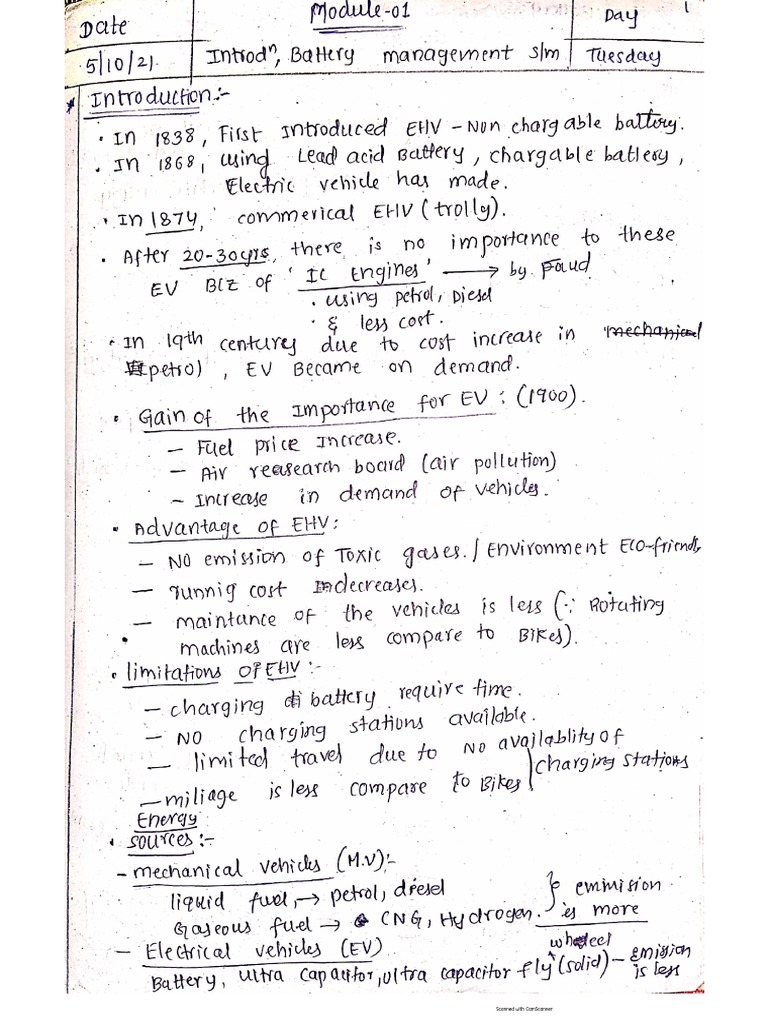 Module-01
Date
Day
1
5/10/21
Introdn, Battery management s/m
Tuesday
* Introduction:-
• In 1838, First Introduced EHV - Non chargable battory.
• In 1868, using Lead acid Battery, chargable batlery,
Electric vehicle has made.
• In 1874, commerical EHV (trolly).
• After 20-30yrs, there is no importance to these
EV BCZ of 'IC Engines' → by Foud
• using petrol, Diesel
• & less cost.
• In 19th century due to cost increase in mechanical
petrol, EV Became on demand.
• Gain of the Importance for EV : (1900).
- Fuel price Increase.
- Air reasearch board (air pollution)
- Increase in demand of vehicles.
• Advantage of EHV:
- NO emission of Toxic gases. / Environment Eco-friendly
- runnig cost Indecreases.
- maintance of the vehicles is less (∵ Rotating
machines are less compare to Bikes).
• limitations OF EHV :-
- charging di battery require time.
- NO charging stations available.
- limited travel due to NO availablity of
charging stations
- miliage is less compare to Bikes
Energy
• sources:-
- mechanical vehicles (M.V):-
liquid fuel, → petrol, diesel } emmision
Gaseous fuel → CNG, Hydrogen. is more
- Electrical vehicles (EV)
wheel
Battery, ultra capacitor, ultra capacitor fly (solid) - Emission
is less
Scanned with CamScanner